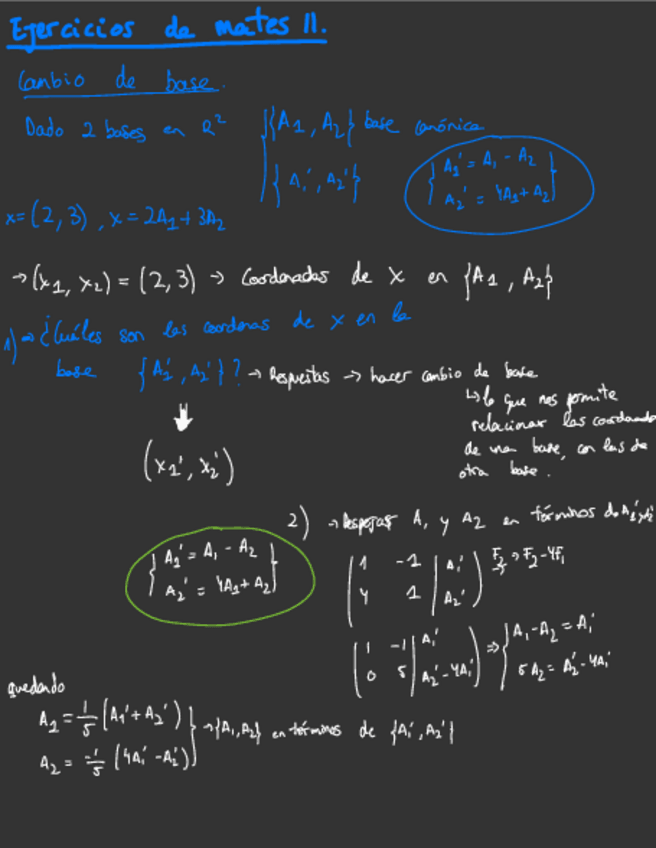 Ejercicios de mates II.
Cambio de base.
Dado 2 bases en R² { {A1, A2} base canónica
{A1', A2'}
{ A1' = A1 - A2
A2' = 4A1 + A2 }
x = (2, 3), x = 2A1 + 3A2
→ (x1, x2) = (2, 3) → Coordenadas de x en {A1, A2}
1) → ¿Cuáles son las coordenas de x en la
base {A1', A2'}? → Respuestas → hacer cambio de base
↳ lo que nos permite
relacionar las coordenadas
de una base, con las de
otra base.
(x1', x2')
2) → Despejar A1 y A2 en términos de A1' y A2'
{ A1' = A1 - A2
A2' = 4A1 + A2 }
( 1 -1 | A1'
4 1 | A2' ) F2 → F2 - 4F1
( 1 -1 | A1'
0 5 | A2' - 4A1' ) ⇒ { A1 - A2 = A1'
5A2 = A2' - 4A1'
quedando
A1 = 1/5 (A1' + A2')
A2 = -1/5 (4A1' - A2') } → {A1, A2} en términos de {A1', A2'}